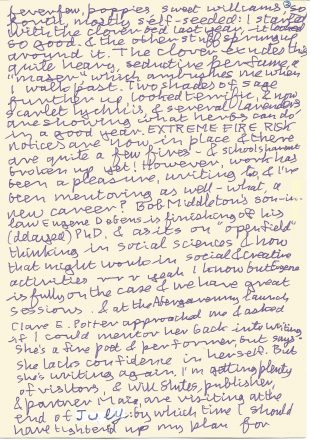 feverfew, poppies, sweet williams & so
forth, mostly self-seeded: I started
with the clover bed last year, it looked
so good, & the other stuff sprung up
around it. The clover exudes this
quite heavy, seductive perfume, a
"mazer" which ambushes me when
I walk past. Two shades of sage
further up looked terrific, & now
scarlet lychnis, & several lavenders
are showing what herbs can do
in a good year. EXTREME FIRE RISK
notices are now in place & there
are quite a few fires – & schools haven't
broken up yet! However, work has
been a pleasure, writing to, & I've
been mentoring as well – what, a
new career? Bob Middleton's son-in-
law Eugene Dubens is finishing of his
(delayed) PhD, & as its on "open field"
thinking in social sciences & how
that might work in social & creative
activities yeah I know but Eugene
is fully on the case & we have great
sessions. & at the Abergavenny launch,
Clare E. Potter approached me & asked
if I could mentor her back into writing.
She's a fine poet & performer, but says
she lacks confidence in herself. But
she's writing again. I'm getting plenty
of visitors, & Will Shutes, publisher,
& partner Maze, are visiting at the
end of July: by which time I should
have tightened up my plan for